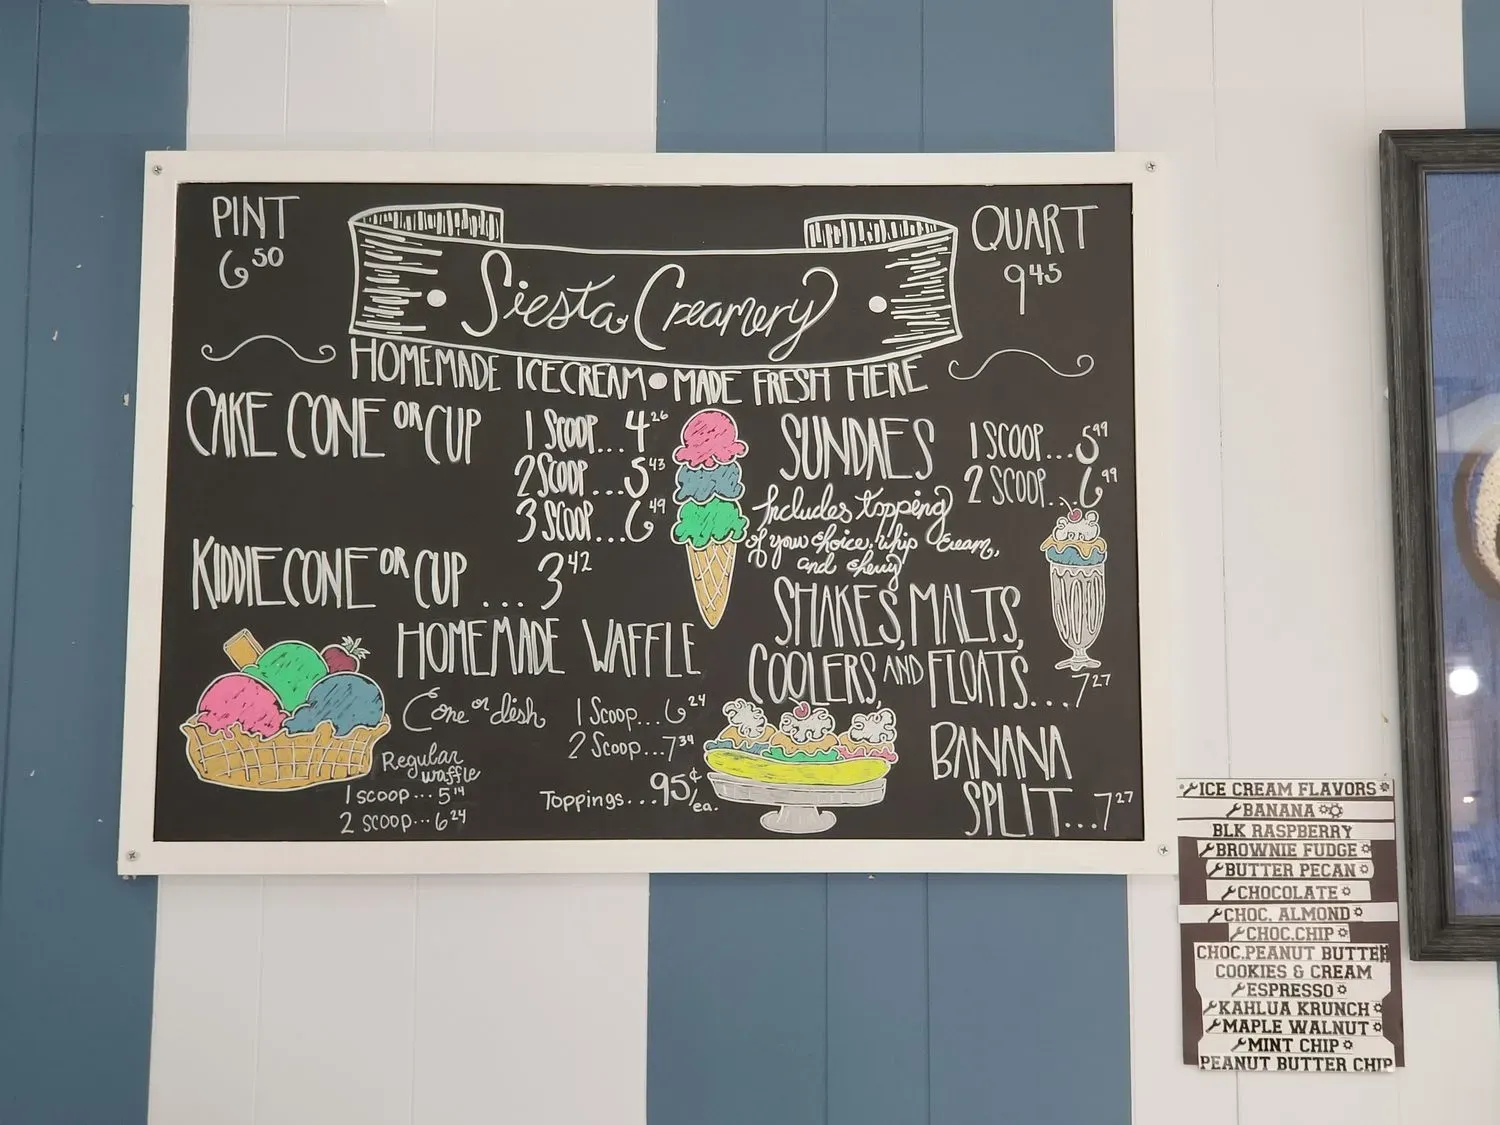 PINT
6 50
Siesta Creamery
QUART
9 45
HOMEMADE ICECREAM • MADE FRESH HERE
CAKE CONE OR CUP
1 SCOOP... 4 26
2 SCOOP... 5 43
3 SCOOP... 6 49
KIDDIE CONE OR CUP ... 3 42
HOMEMADE WAFFLE
Cone or dish
1 Scoop... 6 24
2 Scoop... 7 34
Regular
waffle
1 scoop... 5 14
2 scoop... 6 24
Toppings... 95¢/ea.
SUNDAES
1 SCOOP... 5 99
2 SCOOP... 6 99
Includes topping
of your choice, whip cream,
and cherry
SHAKES, MALTS,
COOLERS, AND FLOATS... 7 27
BANANA
SPLIT... 7 27
ICE CREAM FLAVORS
BANANA
BLK RASPBERRY
BROWNIE FUDGE
BUTTER PECAN
CHOCOLATE
CHOC. ALMOND
CHOC.CHIP
CHOC.PEANUT BUTTER
COOKIES & CREAM
ESPRESSO
KAHLUA KRUNCH
MAPLE WALNUT
MINT CHIP
PEANUT BUTTER CHIP